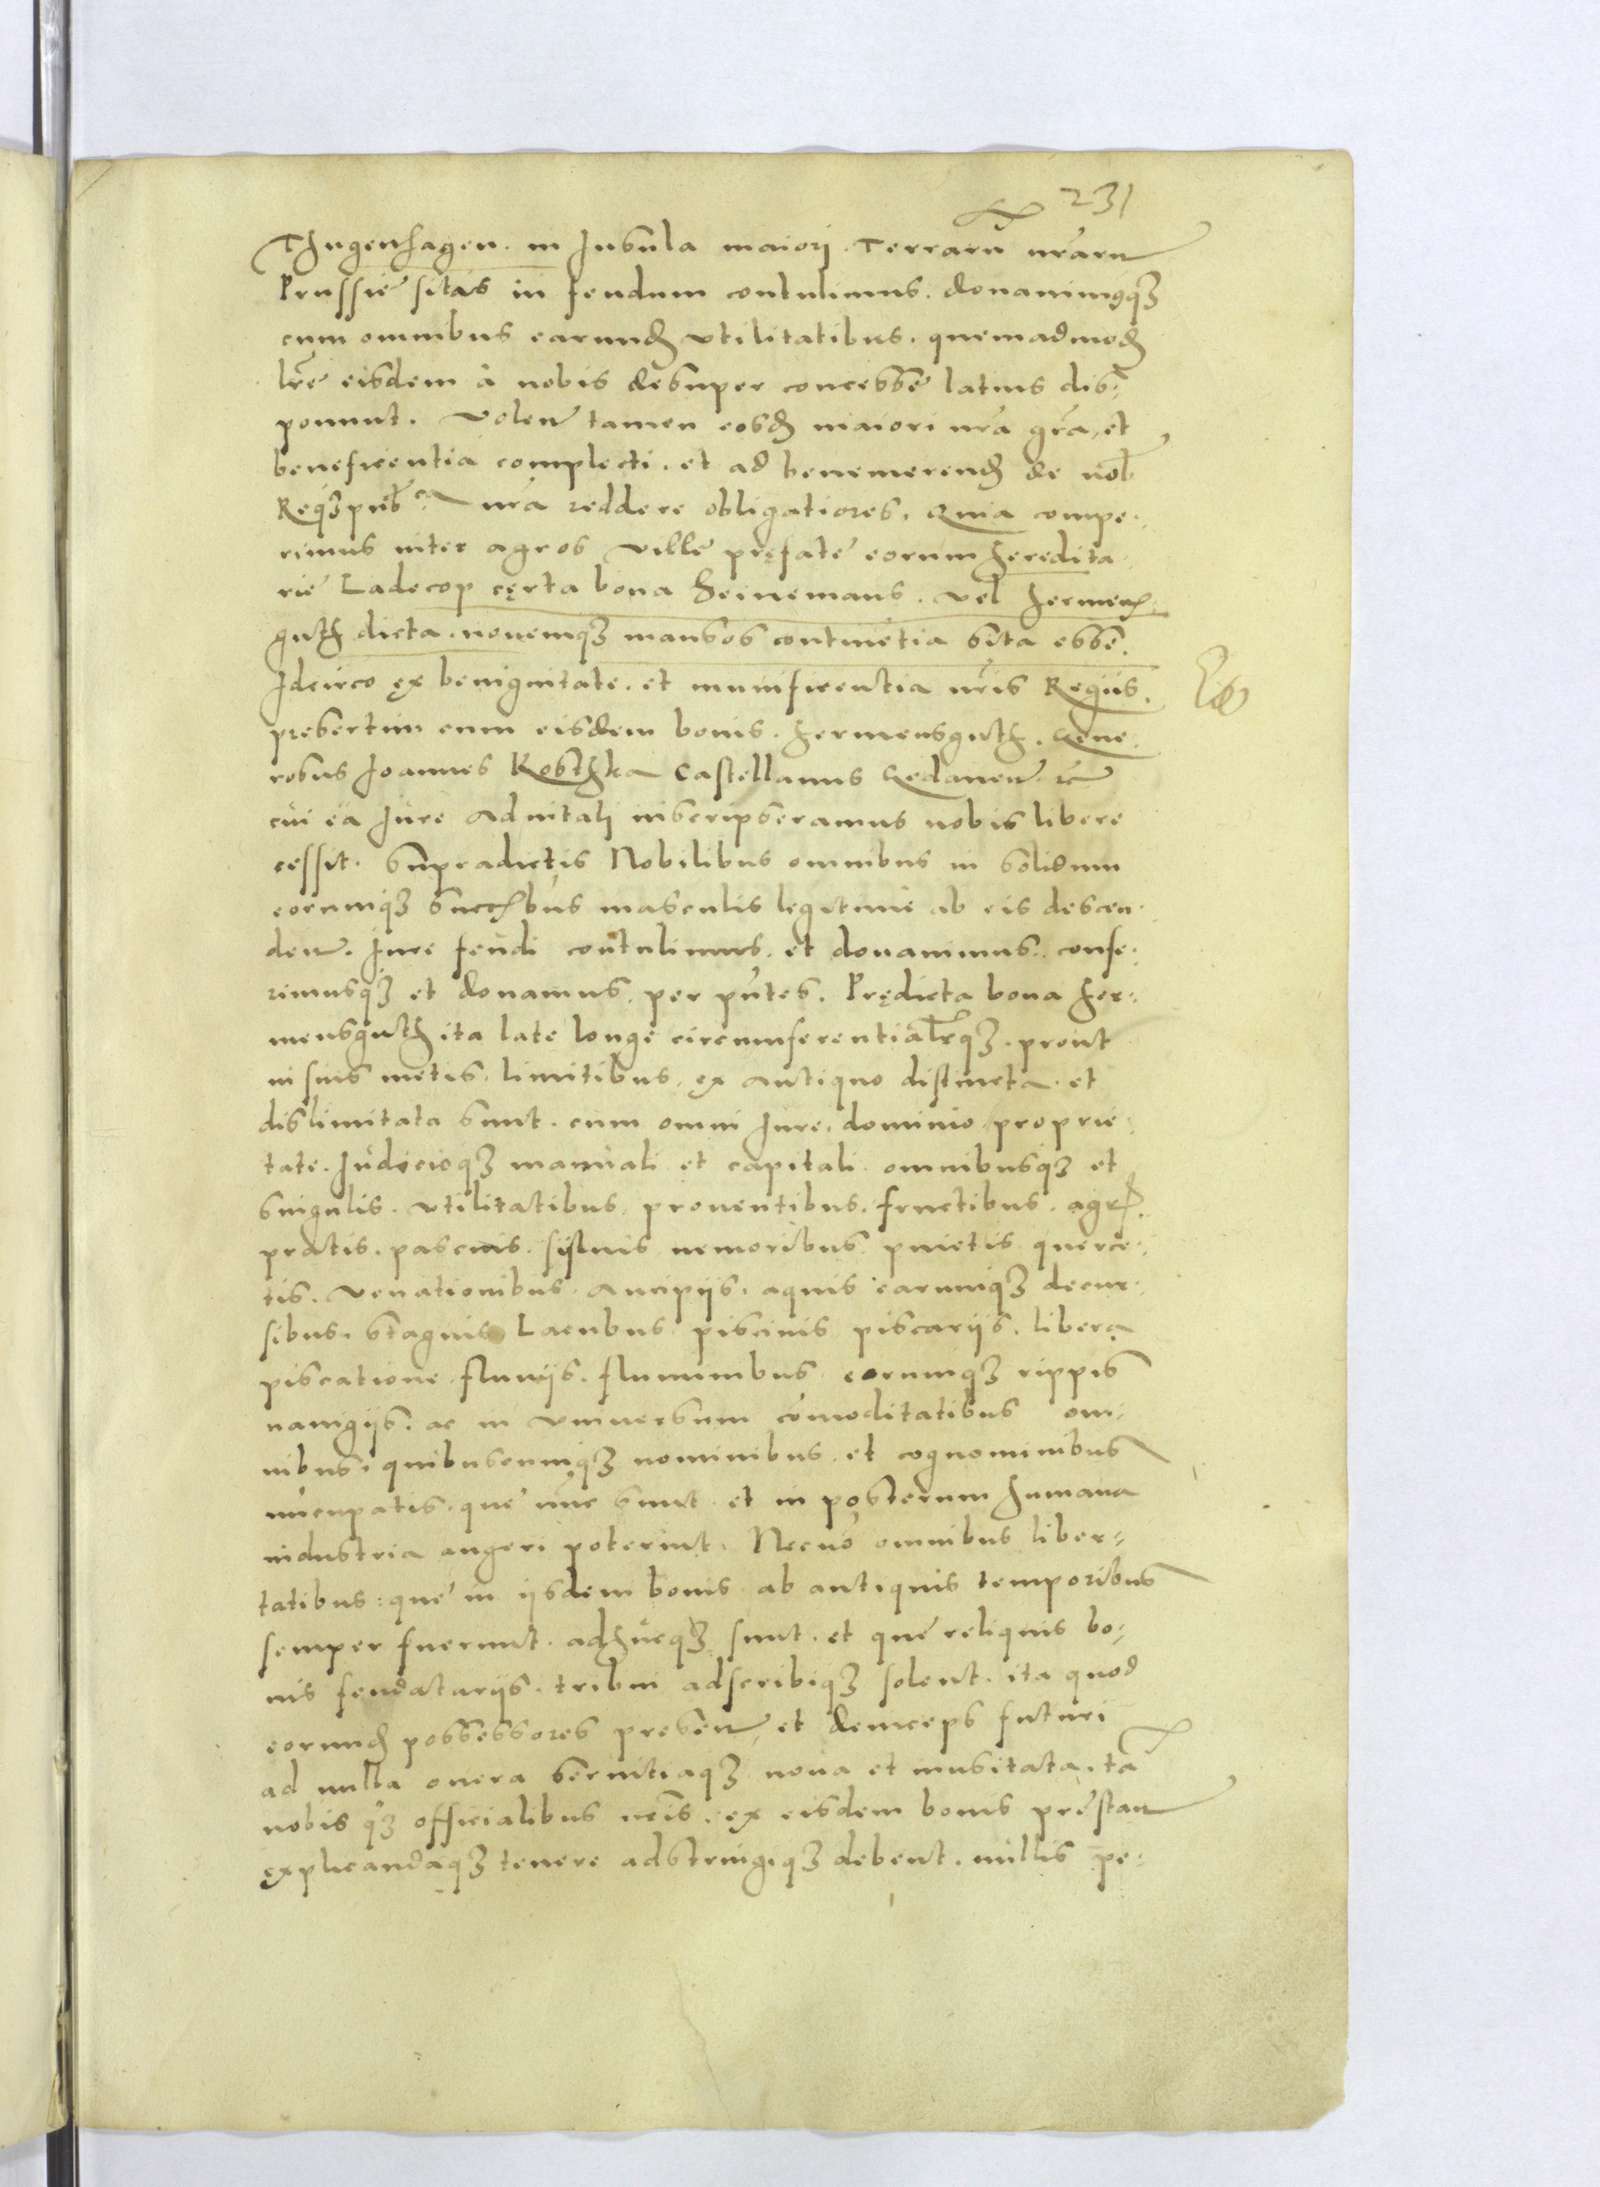 231
Thugenhagen. in Insula maiori. Terraru nraru
Prussie sitas in feudum contulimus. donauimusq3
cum omnibus earund vtilitatibus. quemadmod
lre eisdem à nobis desuper concesse latius dis-
ponunt. Volen tamen eosd maiori nra gra, et
beneficentia complecti. et ad benemerend de nob
Req3pub ca nra reddere obligatiores. Quia compe-
rimus inter agros Ville pręfate eorum heredita-
rie Ladecop cęrta bona Heinemans. vel Hermens-
guth dicta. nouemq3 mansos continetia sita esse.
Idcirco ęx benignitate. et munificentia nris Regiis.
presertim cum eisdem bonis. Hermensguth. Gene-
rosus Ioannes Kosthka Castellanus Gedanen. rc
cui ea Iure aduitali inscripseramus nobis libere
cessit. Supradictis Nobilibus omnibus in solidum
eorumq3 succbus masculis legitime ab eis descen-
den. Iure feudi contulimus. et donauimus. confe-
rimusq3 et donamus. per pntes. Prędicta bona Her-
mensguth ita late longe circumferentialrq3. prout
in suis metis. limitibus. ex antiquo distincta. et
dislimitata sunt. cum omni Iure. dominio proprie-
tate. Iudicioq3 manuali et capitali. omnibusq3 et
singulis. vtilitatibus. prouentibus. fructibus. agr.
pratis. pascuis. syluis nemoribus pinetis querce-
tis. venationibus. aucipiis. aquis earumq3 decur-
sibus. stagnis Lacubus piscinis piscariis. libera
piscatione fluuiis. fluminibus eorumq3 rippis
nauigiis. ac in vniuersum comoditatibus om-
nibus. quibuscumq3 nominibus. et cognominibus
nucupatis. que nuc sunt. et in posterum humana
industria augeri poterint. Necno omnibus liber-
tatibus: que in iisdem bonis ab antiquis temporibus
semper fuerunt. adhucq3 sunt. et que reliquis bo-
nis feudatariis. tribui adscribiq3 solent. ita quod
eorund possessores presen, et deinceps futuri
ad nulla onera seruitiaq3 noua et inusitata. ta
nobis q3 officialibus nris. ex eisdem bonis prestan
ęxplicandaq3 tenere adstringiq3 debent. nullis pe-